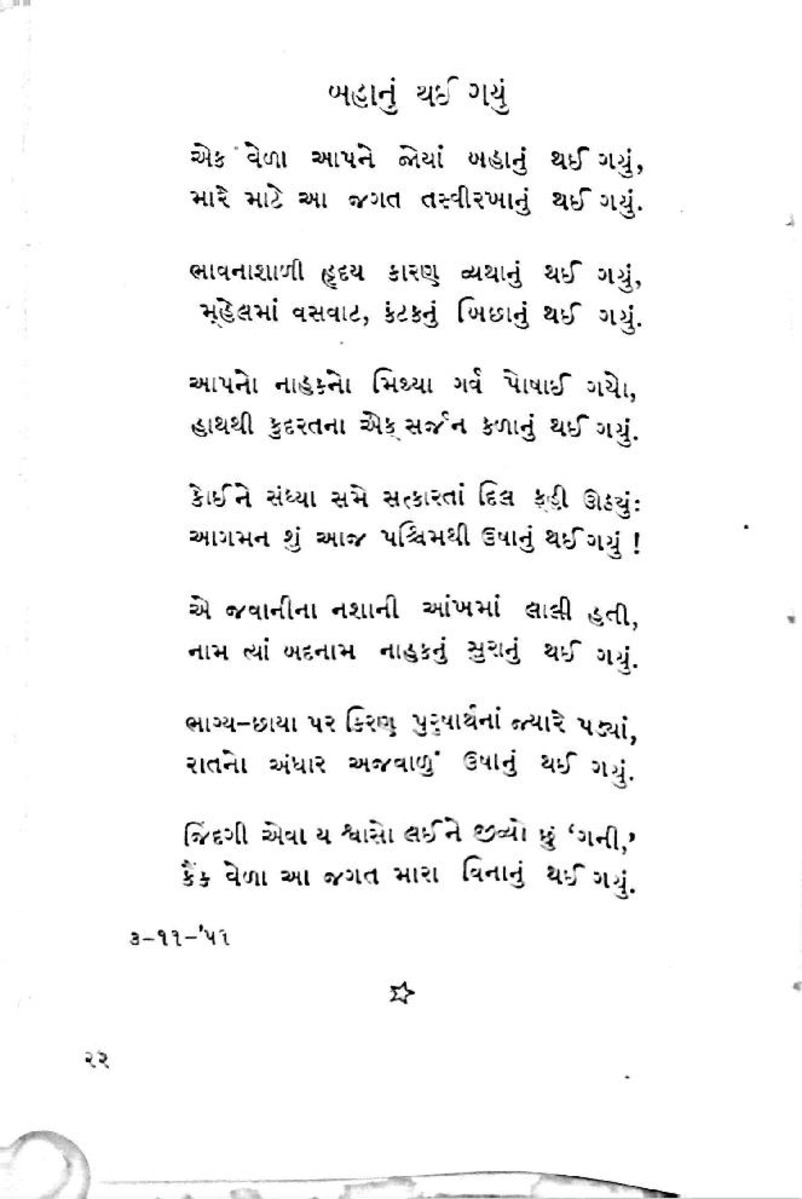 બહાનું થઈ ગયું
એક વેળા આપને જોયાં બહાનું થઈ ગયું,
મારે માટે આ જગત તસ્વીરખાનું થઈ ગયું.
ભાવનાશાળી હૃદય કારણ વ્યથાનું થઈ ગયું,
મ્હેલમાં વસવાટ, કંટકનું બિછાનું થઈ ગયું.
આપનો નાહકનો મિથ્યા ગર્વ પોષાઈ ગયો,
હાથથી કુદરતના એક સર્જન કળાનું થઈ ગયું.
કોઈને સંધ્યા સમે સત્કારતાં દિલ કહી ઊઠયું:
આગમન શું આજ પશ્ચિમથી ઉષાનું થઈ ગયું !
એ જવાનીના નશાની આંખમાં લાલી હતી,
નામ ત્યાં બદનામ નાહકનું સુરાનું થઈ ગયું.
ભાગ્ય-છાયા પર કિરણ પુરુષાર્થનાં જ્યારે પડ્યાં,
રાતનો અંધાર અજવાળું ઉષાનું થઈ ગયું.
જિંદગી એવા ય શ્વાસો લઈને જીવ્યો છું ‘ગની,’
કૈંક વેળા આ જગત મારા વિનાનું થઈ ગયું.
૩-૧૧-’૫૧
☆
૨૨